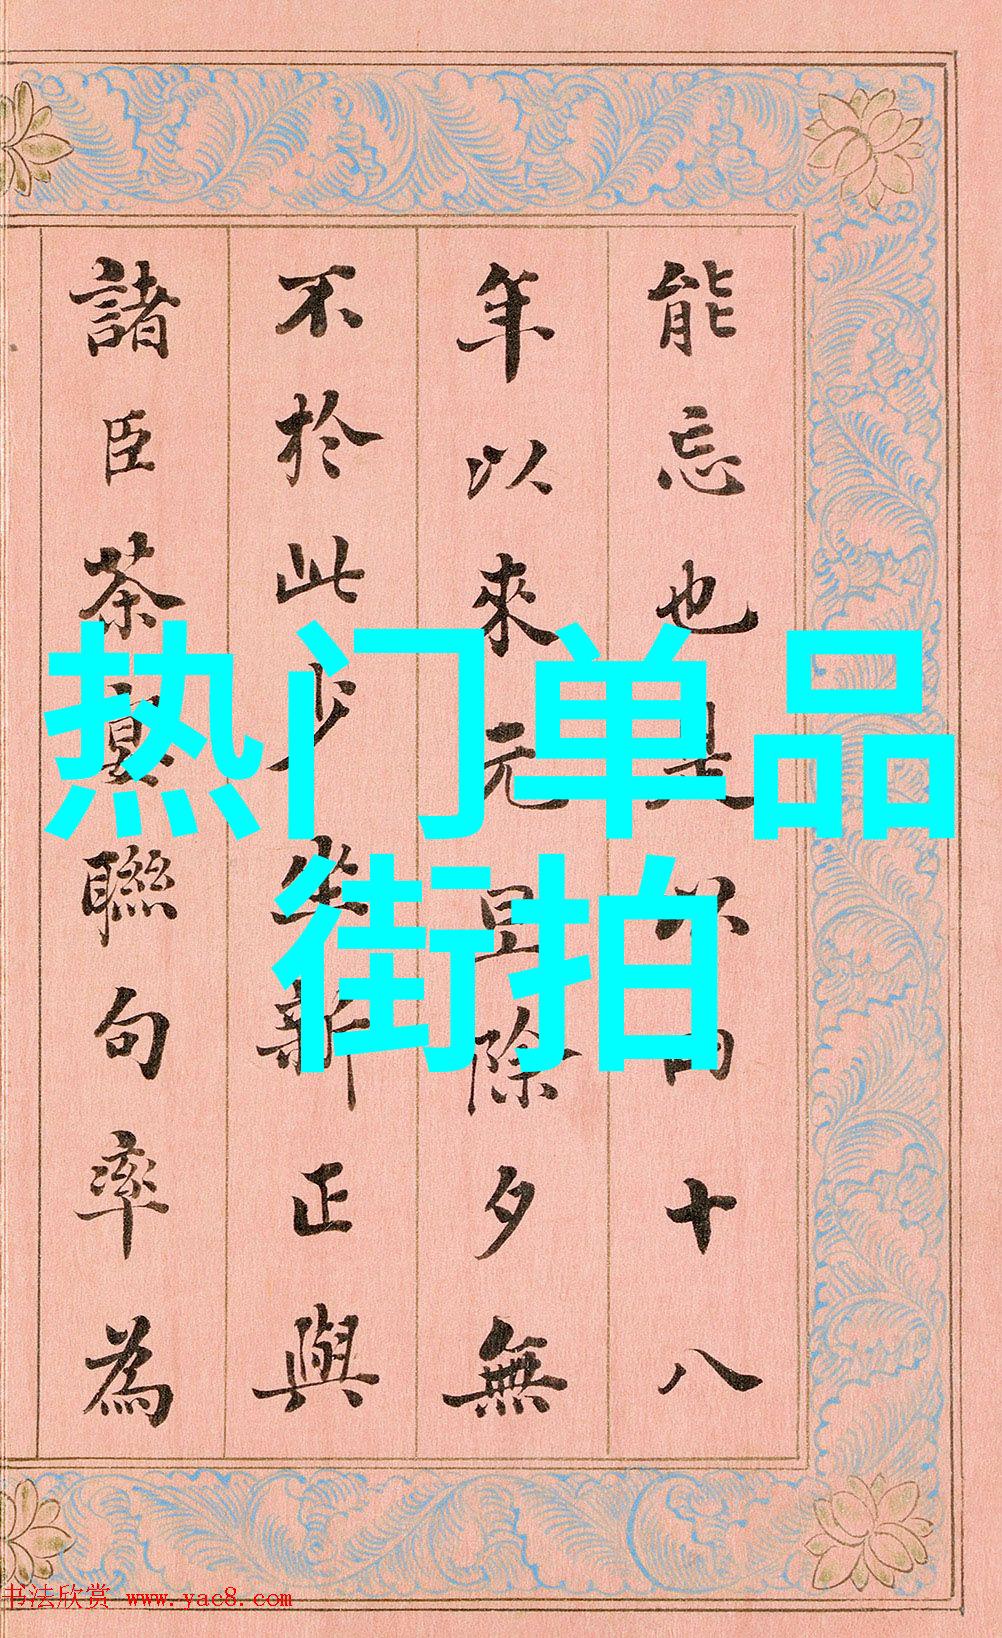 能忘也是以十八
年以來元旦除夕無
不於此少坐新正與
諸臣茶宴聯句率為
热门单品
街拍
书法欣赏 www.yac8.com